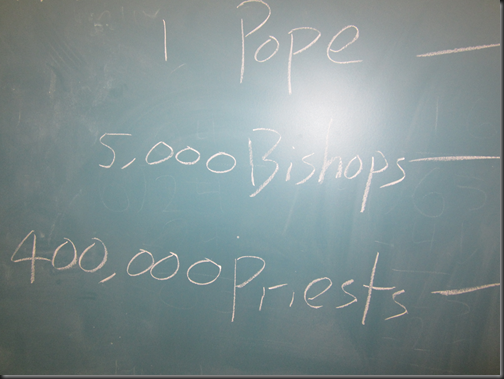 1 Pope —
5,000 Bishops —
400,000 Priests —